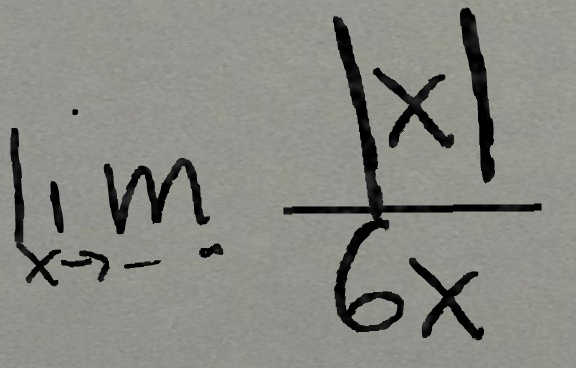 lim x→-∞ |x|/6x